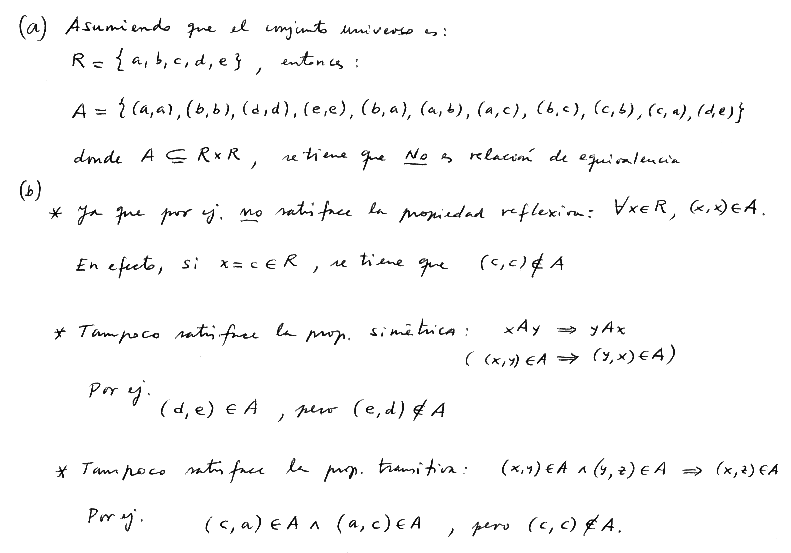 (a) Asumiendo que el conjunto universo es:
R = {a, b, c, d, e}, entonces:
A = {(a,a), (b,b), (d,d), (e,e), (b,a), (a,b), (a,c), (b,c), (c,b), (c,a), (d,e)}
donde A ⊆ R×R, se tiene que No es relación de equivalencia
(b)
* Ya que por ej. no satisface la propiedad reflexiva: ∀x∈R, (x,x)∈A.
En efecto, si x=c∈R, se tiene que (c,c)∉A
* Tampoco satisface la prop. simétrica: xAy ⇒ yAx
((x,y)∈A ⇒ (y,x)∈A)
Por ej. (d,e)∈A, pero (e,d)∉A
* Tampoco satisface la prop. transitiva: (x,y)∈A ∧ (y,z)∈A ⇒ (x,z)∈A
Por ej. (c,a)∈A ∧ (a,c)∈A, pero (c,c)∉A.